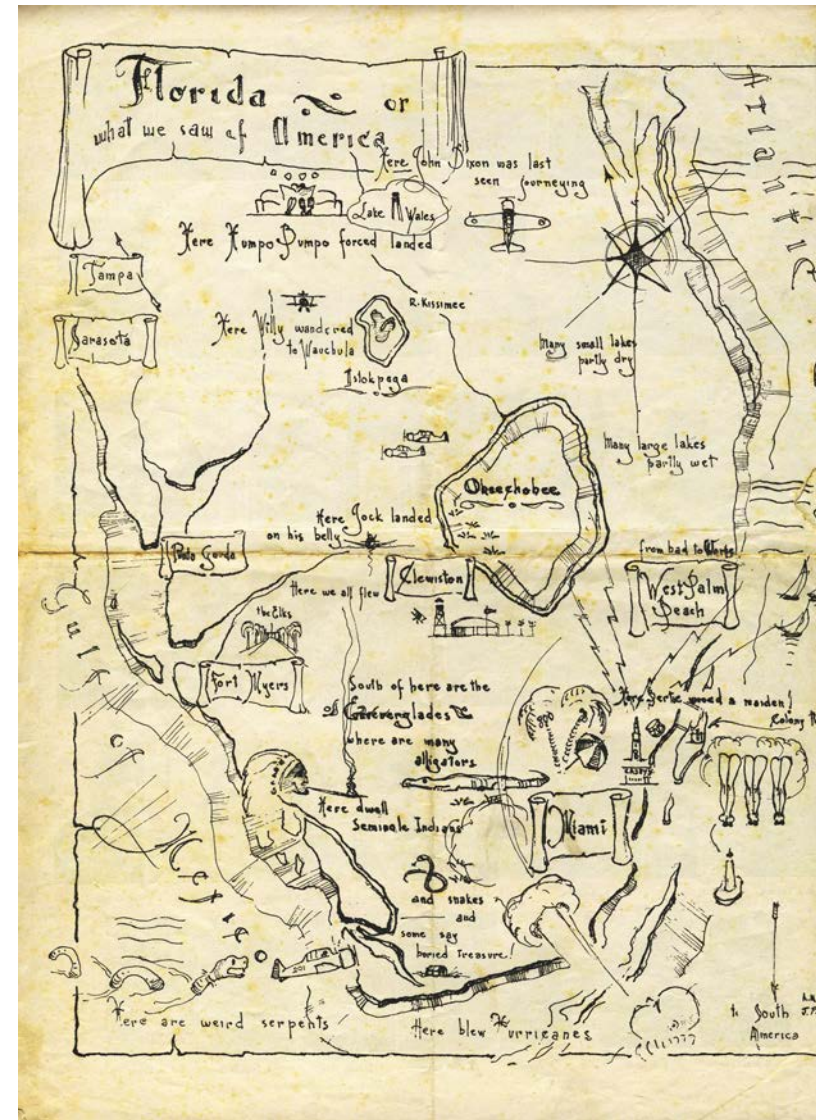 Florida or
what we saw of America
Atlantic
Here John Dixon was last
seen journeying
Lake Wales
Here Humpo Bumpo forced landed
Tampa
Sarasota
R. Kissimee
Here Willy wandered
to Wauchula
Istokpoga
Many small lakes
partly dry
Many large lakes
partly wet
Okeechobee
Here Jock landed
on his belly
Punto Gorda
Clewiston
from bad to Worth
West Palm
Beach
Here we all flew
the Elks
Fort Myers
Gulf of Mexico
South of here are the
Everglades
where are many
alligators
Here Bertie wooed a maiden!
Colony
Here dwell
Seminole Indians
Miami
and snakes
and
some say
buried treasure!
201
Here are weird serpents
Here blew Hurricanes
to South
America